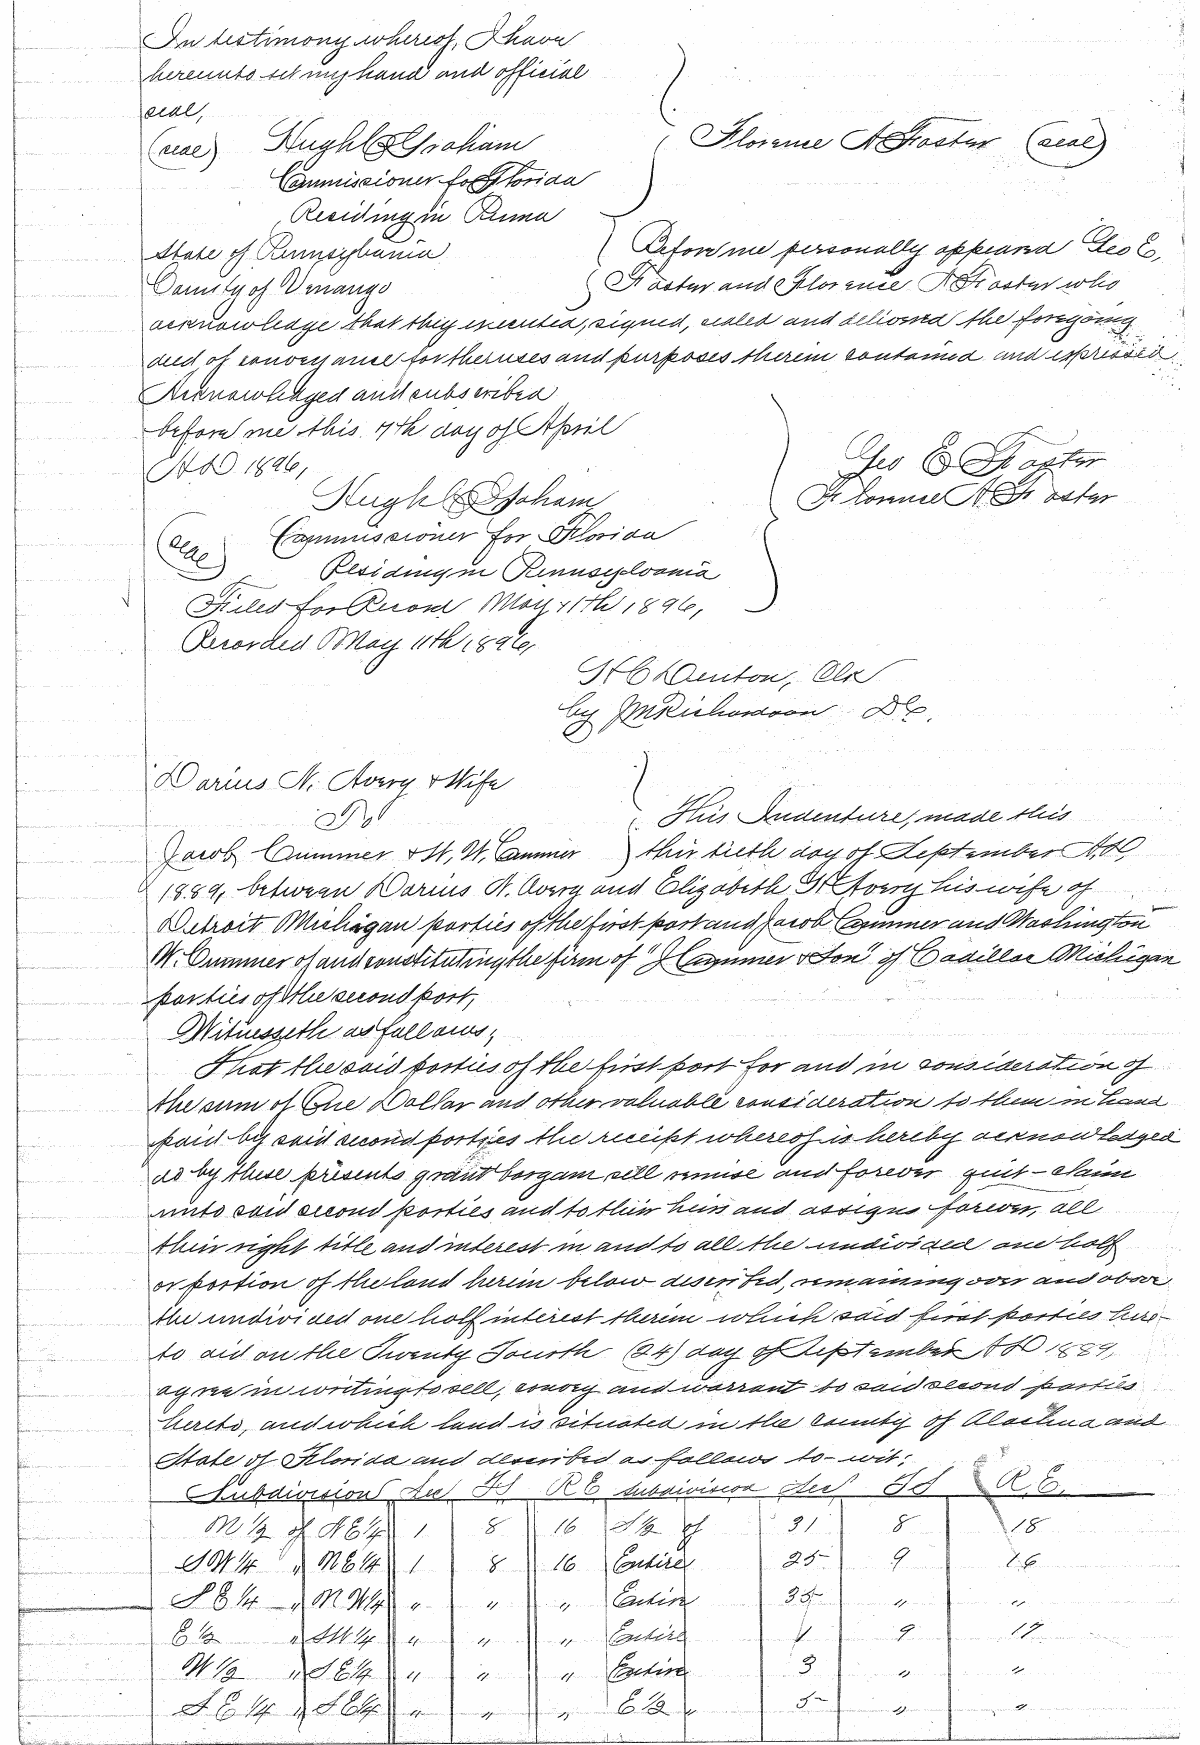 In testimony whereof, I have
hereunto set my hand and official
seal,
(seal) Hugh C Graham
Florence A Foster (seal)
Commissioner for Florida
Residing in Penna
State of Pennsylvania
County of Venango
Before me personally appeared Geo E,
Foster and Florence A Foster who
acknowledge that they executed, signed, sealed and delivered the foregoing
deed of conveyance for the uses and purposes therein contained and expressed
Acknowledged and subscribed
before me this 7th day of April
AD 1896,
Geo E Foster
Florence A Foster
Hugh C Graham
(seal) Commissioner for Florida
Residing in Pennsylvania
Filed for Record May 11th 1896,
Recorded May 11th 1896,
H C Denton, Clk
by J M Richardson D C.
Darius N. Avery & Wife
To
Jacob Cummer & W, W, Cummer
This Indenture, made this
thirtieth day of September A.D,
1889, between Darius N. Avery and Elizabeth H Avery his wife of
Detroit Michigan parties of the first part and Jacob Cummer and Washington
W. Cummer of and constituting the firm of "J Cummer & Son" of Cadillac Michigan
parties of the second part,
Witnesseth as follows;
That the said parties of the first part for and in consideration of
the sum of One Dollar and other valuable consideration to them in hand
paid by said second parties the receipt whereof is hereby acknowledged
do by these presents grant bargain sell remise and forever quit-claim
unto said second parties and to their heirs and assigns forever, all
their right title and interest in and to all the undivided one half
or portion of the land herein below described, remaining over and above
the undivided one half interest therein which said first parties here-
to did on the Twenty Fourth (24) day of September AD 1889,
agree in writing to sell, convey and warrant to said second parties
hereto, and which land is situated in the county of Alachua and
State of Florida and described as follows to-wit;
Subdivision Sec TS R E subdivision Sec TS R E.
N 1/2 of N E 1/4 1 8 16 S 1/2 of 31 8 18
S W 1/4 " N E 1/4 1 8 16 Entire 25 9 16
S E 1/4 " N W 1/4 " " " Entire 35 " "
E 1/2 " S W 1/4 " " " Entire 1 9 17
W 1/2 " S E 1/4 " " " Entire 3 " "
S E 1/4 " S E 1/4 " " " E 1/2 " 5 " "